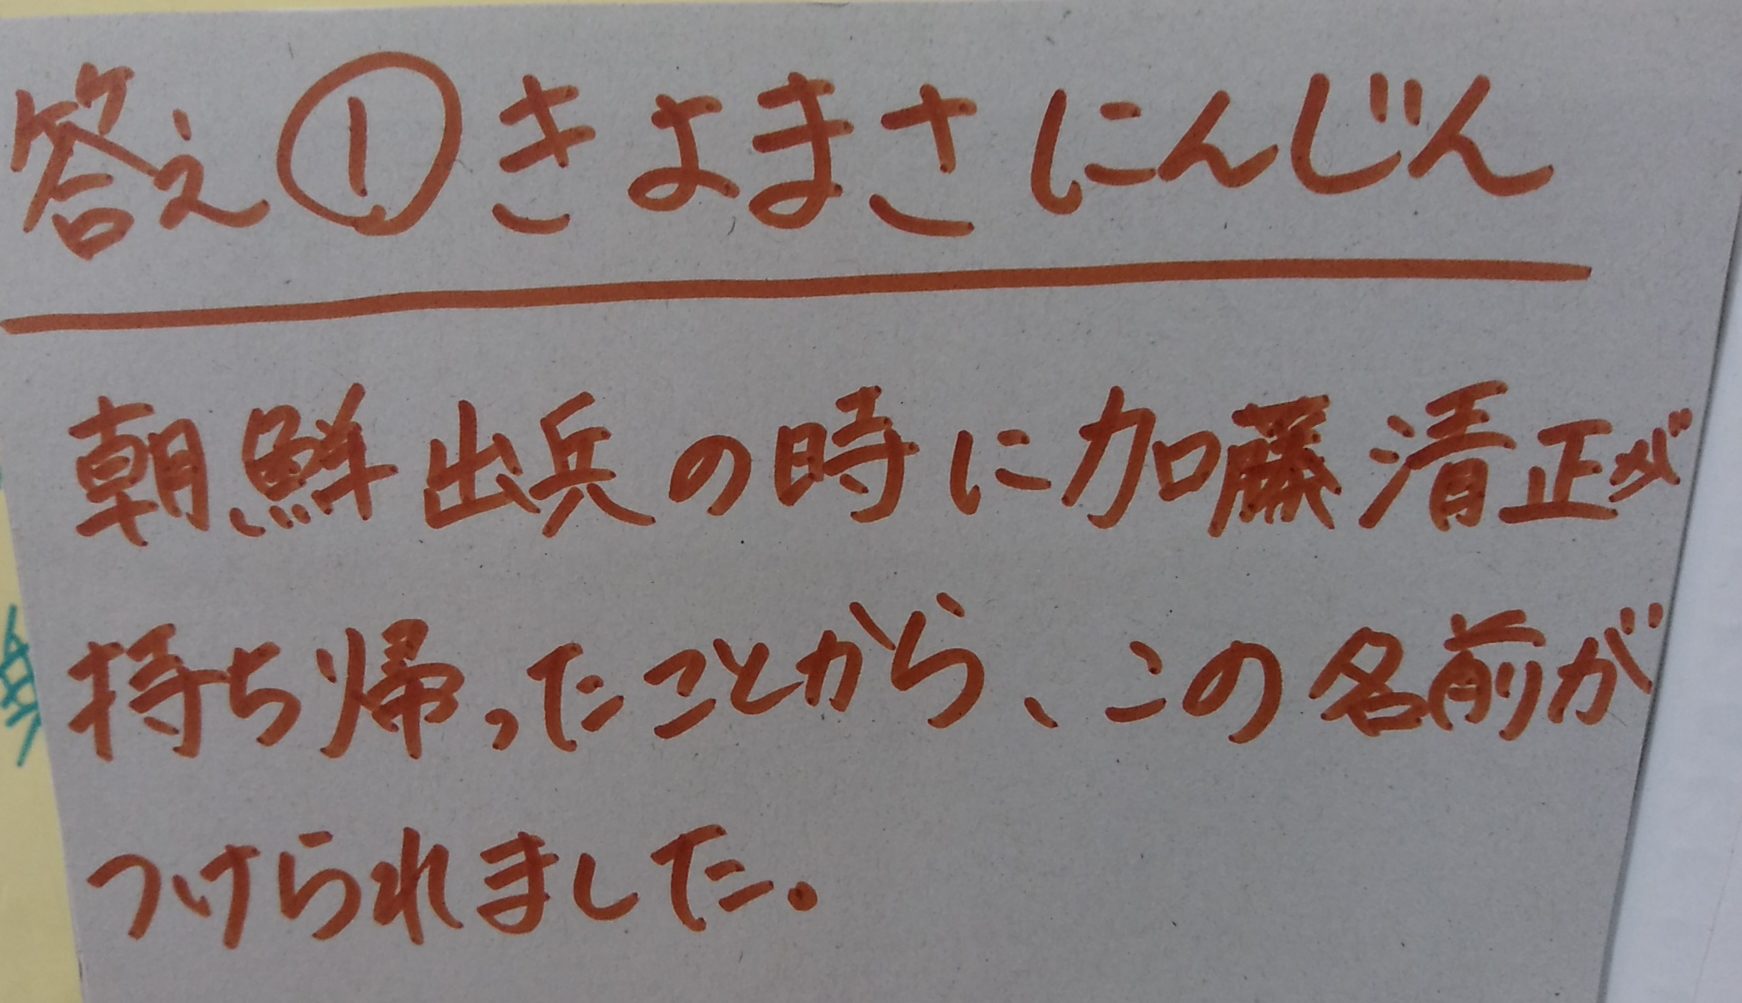 答え①きよまさにんじん
朝鮮出兵の時に加藤清正が
持ち帰ったことから、この名前が
つけられました。